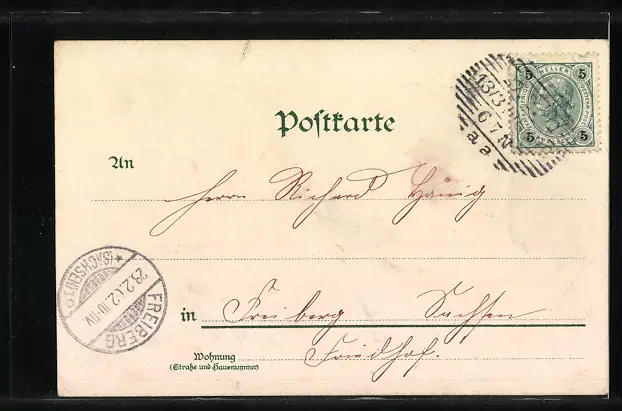 5 HELLER 5
13/3
6-7N
5 5
Postkarte
An
Herrn Richard Hänig
(SACHSEN)
23.2.02.10-11V
FREIBERG
in Freiberg Sachsen
Wohnung Friedhof.
(Straße und Hausnummer)